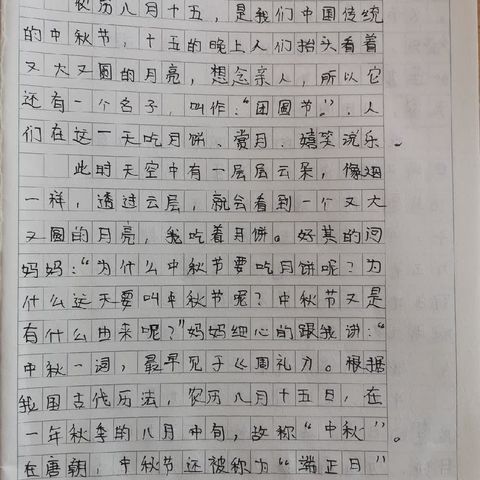 农历八月十五，是我们中国传统
的中秋节，十五的晚上人们抬头看着
又大又圆的月亮，想念亲人，所以它
还有一个名子，叫作：“团圆节”。人
们在这一天吃月饼、赏月、嬉笑说乐。
此时天空中有一层层云朵，像烟
一样，透过云层，就会看到一个又大
又圆的月亮，我吃着月饼。好其的问
妈妈：“为什么中秋节要吃月饼呢？为
什么这天要叫中秋节呢？中秋节又是
有什么由来呢？”妈妈细心的跟我讲：“
中秋一词，最早见于《周礼》。根据
我国古代历法，农历八月十五日，在
一年秋季的八月中旬，故称“中秋”。
在唐朝，中秋节还被称为“端正月”